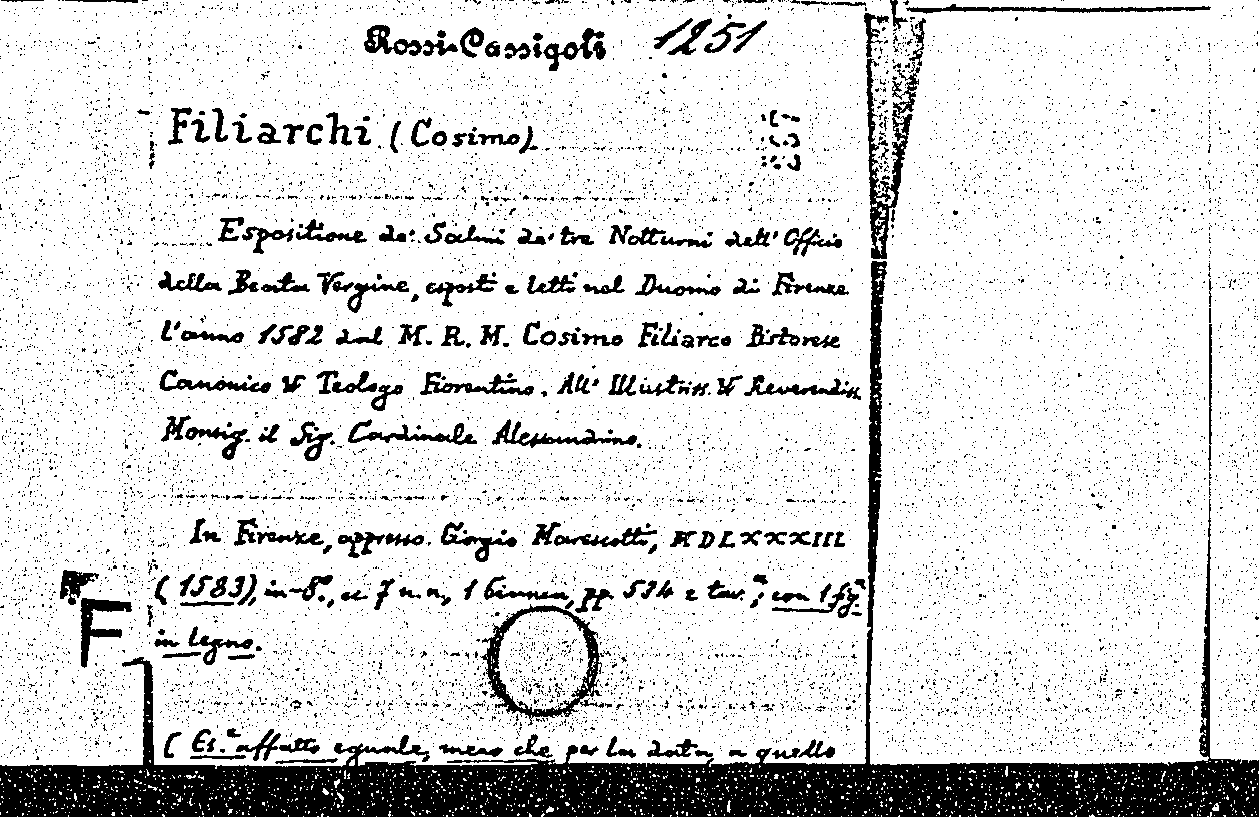 Rossi-Cassigoli 1251
Filiarchi (Cosimo).
Espositione de' Salmi de' tre Notturni dell' Officio
della Beata Vergine, esposti e letti nel Duomo di Firenze
l'anno 1582 dal M. R. M. Cosimo Filiarco Pistorese
Canonico & Teologo Fiorentino. All' Illustriss. & Reverendiss.
Monsig. il Sig. Cardinale Alessandrino.
In Firenze, appresso Giorgio Marescotti, MDLXXXIII
(1583), in-8°., cc 7 n. n., 1 bianca, pp. 534 e tav.ª; con 1 fig.ª
F
in legno.
( Es.e affatto eguale, meno che per la data, a quello